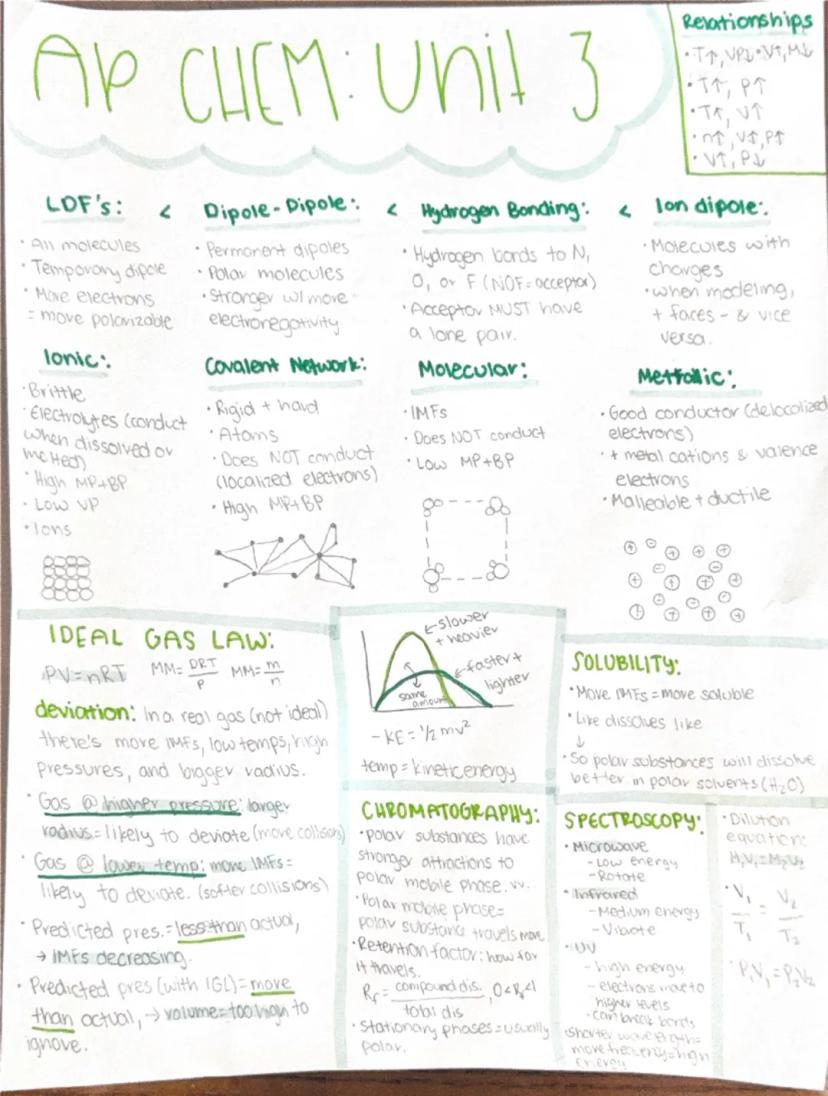 AP CHEM: Unit 3
Relationships
• T↑, VP↓ • V↑, M↓
• T↑, P↑
• T↑, V↑
• n↑, V↑, P↑
• V↑, P↓
LDF's: < Dipole-Dipole: < Hydrogen Bonding: < Ion dipole:
• All molecules
• Temporary dipole
• More electrons
= more polarizable
• Permanent dipoles
• Polar molecules
• Stronger w/more
electronegativity
• Hydrogen bonds to N,
O, or F (NOF=acceptor)
• Acceptor MUST have
a lone pair.
• Molecules with
charges
• when modeling,
+ faces - & vice
versa.
Ionic:
• Brittle
• Electrolytes (conduct
when dissolved or
melted)
• High MP+BP
• Low VP
• Ions
Covalent Network:
• Rigid + hard
• Atoms
• Does NOT conduct
(localized electrons)
• High MP+BP
Molecular:
• IMFs
• Does NOT conduct
• Low MP+BP
Mettallic:
• Good conductor (delocalized
electrons)
• + metal cations & valence
electrons
• Malleable + ductile
IDEAL GAS LAW:
PV=nRT MM=DRT/P MM=m/n
deviation: In a real gas (not ideal)
there's more IMFs, low temps, high
pressures, and bigger radius.
• Gas @ higher pressure: larger
radius=likely to deviate (more collisions)
• Gas @ lower temp: more IMFs=
likely to deviate. (softer collisions)
• Predicted pres.=less than actual,
→ IMFs decreasing.
• Predicted pres (with IGL)=more
than actual, → volume=too high to
ignore.
slower
+ heavier
faster +
lighter
same
amount
- KE=1/2 mv²
temp=kinetic energy
SOLUBILITY:
• More IMFs=more soluble
• Like dissolves like
↓
• So polar substances will dissolve
better in polar solvents (H₂O)
CHROMATOGRAPHY:
• polar substances have
stronger attractions to
polar mobile phase. vv.
• Polar mobile phase=
polar substance travels more
• Retention factor: how far
it travels.
Rf=compound dis./total dis, 0<Rf<1
• Stationary phases=usually
polar.
SPECTROSCOPY:
• Microwave
- Low energy
- Rotate
• Infrared
- Medium energy
- Vibrate
• UV
- high energy
- electrons move to
higher levels
• can break bonds
• Shorter wavelength=
more frequency=high
energy
• Dilution
equation:
M₁V₁=M₂V₂
• V₁/T₁ = V₂/T₂
• P₁V₁=P₂V₂